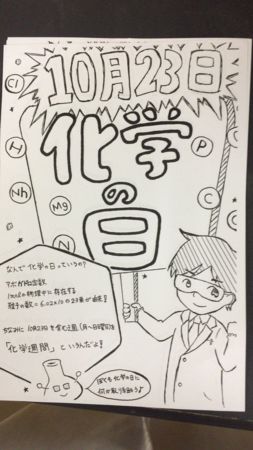 10月23日
化学
の
日
Cl
H
Nh
Mg
N
P
C
C
なんで"化学の日"っていうの?
アボガドロ定数
1molの物質中に存在する
粒子の数=6.02×10の23乗が由来!
ちなみに10月23日を含む週(月〜日曜日)は
「化学週間」というんだよ!
ぼくも化学の日に